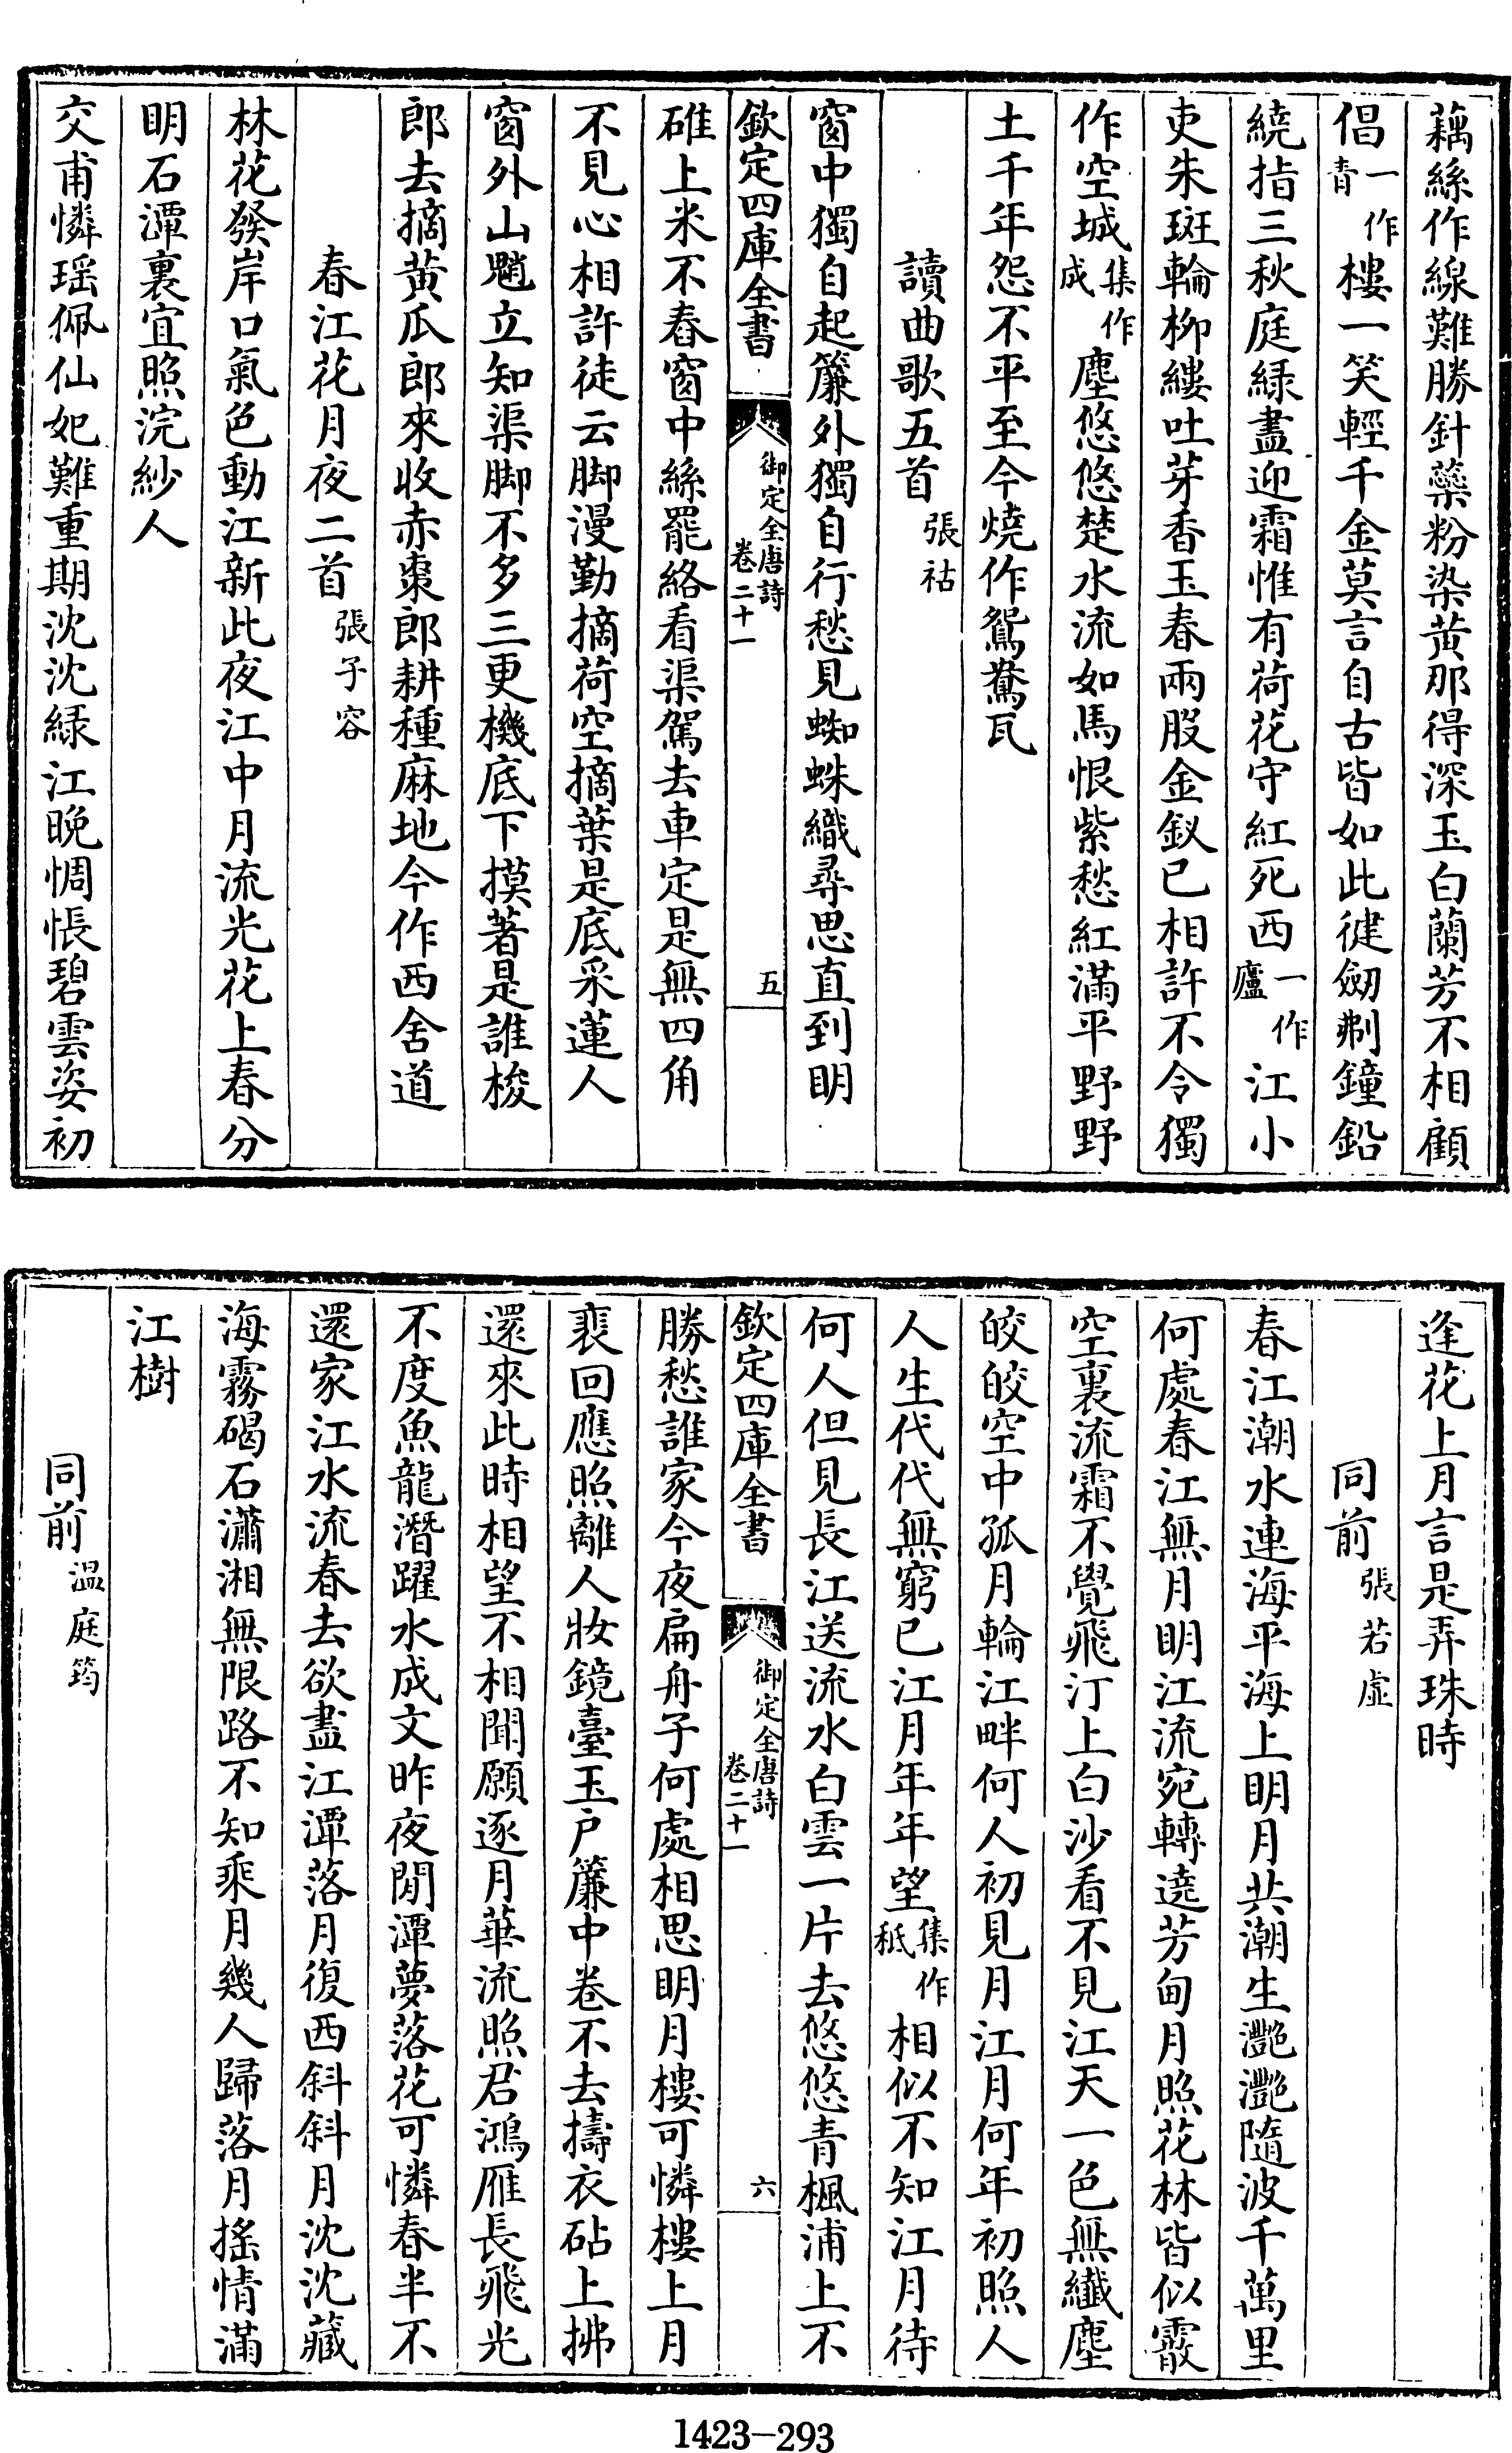 藕絲作線難勝針蘂粉染黄那得深玉白蘭芳不相顧
倡一作青樓一笑輕千金莫言自古皆如此健劒剸鐘鉛
繞指三秋庭緑盡迎霜惟有荷花守紅死西一作廬江小
吏朱斑輪柳縷吐芽香玉春兩股金釵已相許不令獨
作空城集作成塵悠悠楚水流如馬恨紫愁紅滿平野野
土千年怨不平至今燒作鴛鴦瓦
讀曲歌五首張祜
窗中獨自起簾外獨自行愁見蜘蛛織尋思直到明
欽定四庫全書 御定全唐詩 卷二十一 五
碓上米不舂窗中絲罷絡看渠駕去車定是無四角
不見心相許徒云脚漫勤摘荷空摘葉是底采蓮人
窗外山魈立知渠脚不多三更機底下摸著是誰梭
郎去摘黄瓜郎來收赤棗郎耕種麻地今作西舍道
春江花月夜二首張子容
林花發岸口氣色動江新此夜江中月流光花上春分
明石潭裏宜照浣紗人
交甫憐瑶佩仙妃難重期沈沈緑江晚惆悵碧雲姿初
逢花上月言是弄珠時
同前張若虚
春江潮水連海平海上明月共潮生灧灧隨波千萬里
何處春江無月明江流宛轉遶芳甸月照花林皆似霰
空裏流霜不覺飛汀上白沙看不見江天一色無纖塵
皎皎空中孤月輪江畔何人初見月江月何年初照人
人生代代無窮已江月年年望集作秖相似不知江月待
何人但見長江送流水白雲一片去悠悠青楓浦上不
欽定四庫全書 御定全唐詩 卷二十一 六
勝愁誰家今夜扁舟子何處相思明月樓可憐樓上月
裴回應照離人妝鏡臺玉户簾中卷不去擣衣砧上拂
還來此時相望不相聞願逐月華流照君鴻雁長飛光
不度魚龍潛躍水成文昨夜閒潭夢落花可憐春半不
還家江水流春去欲盡江潭落月復西斜斜月沈沈藏
海霧碣石瀟湘無限路不知乘月幾人歸落月搖情滿
江樹
同前温庭筠
1423-293